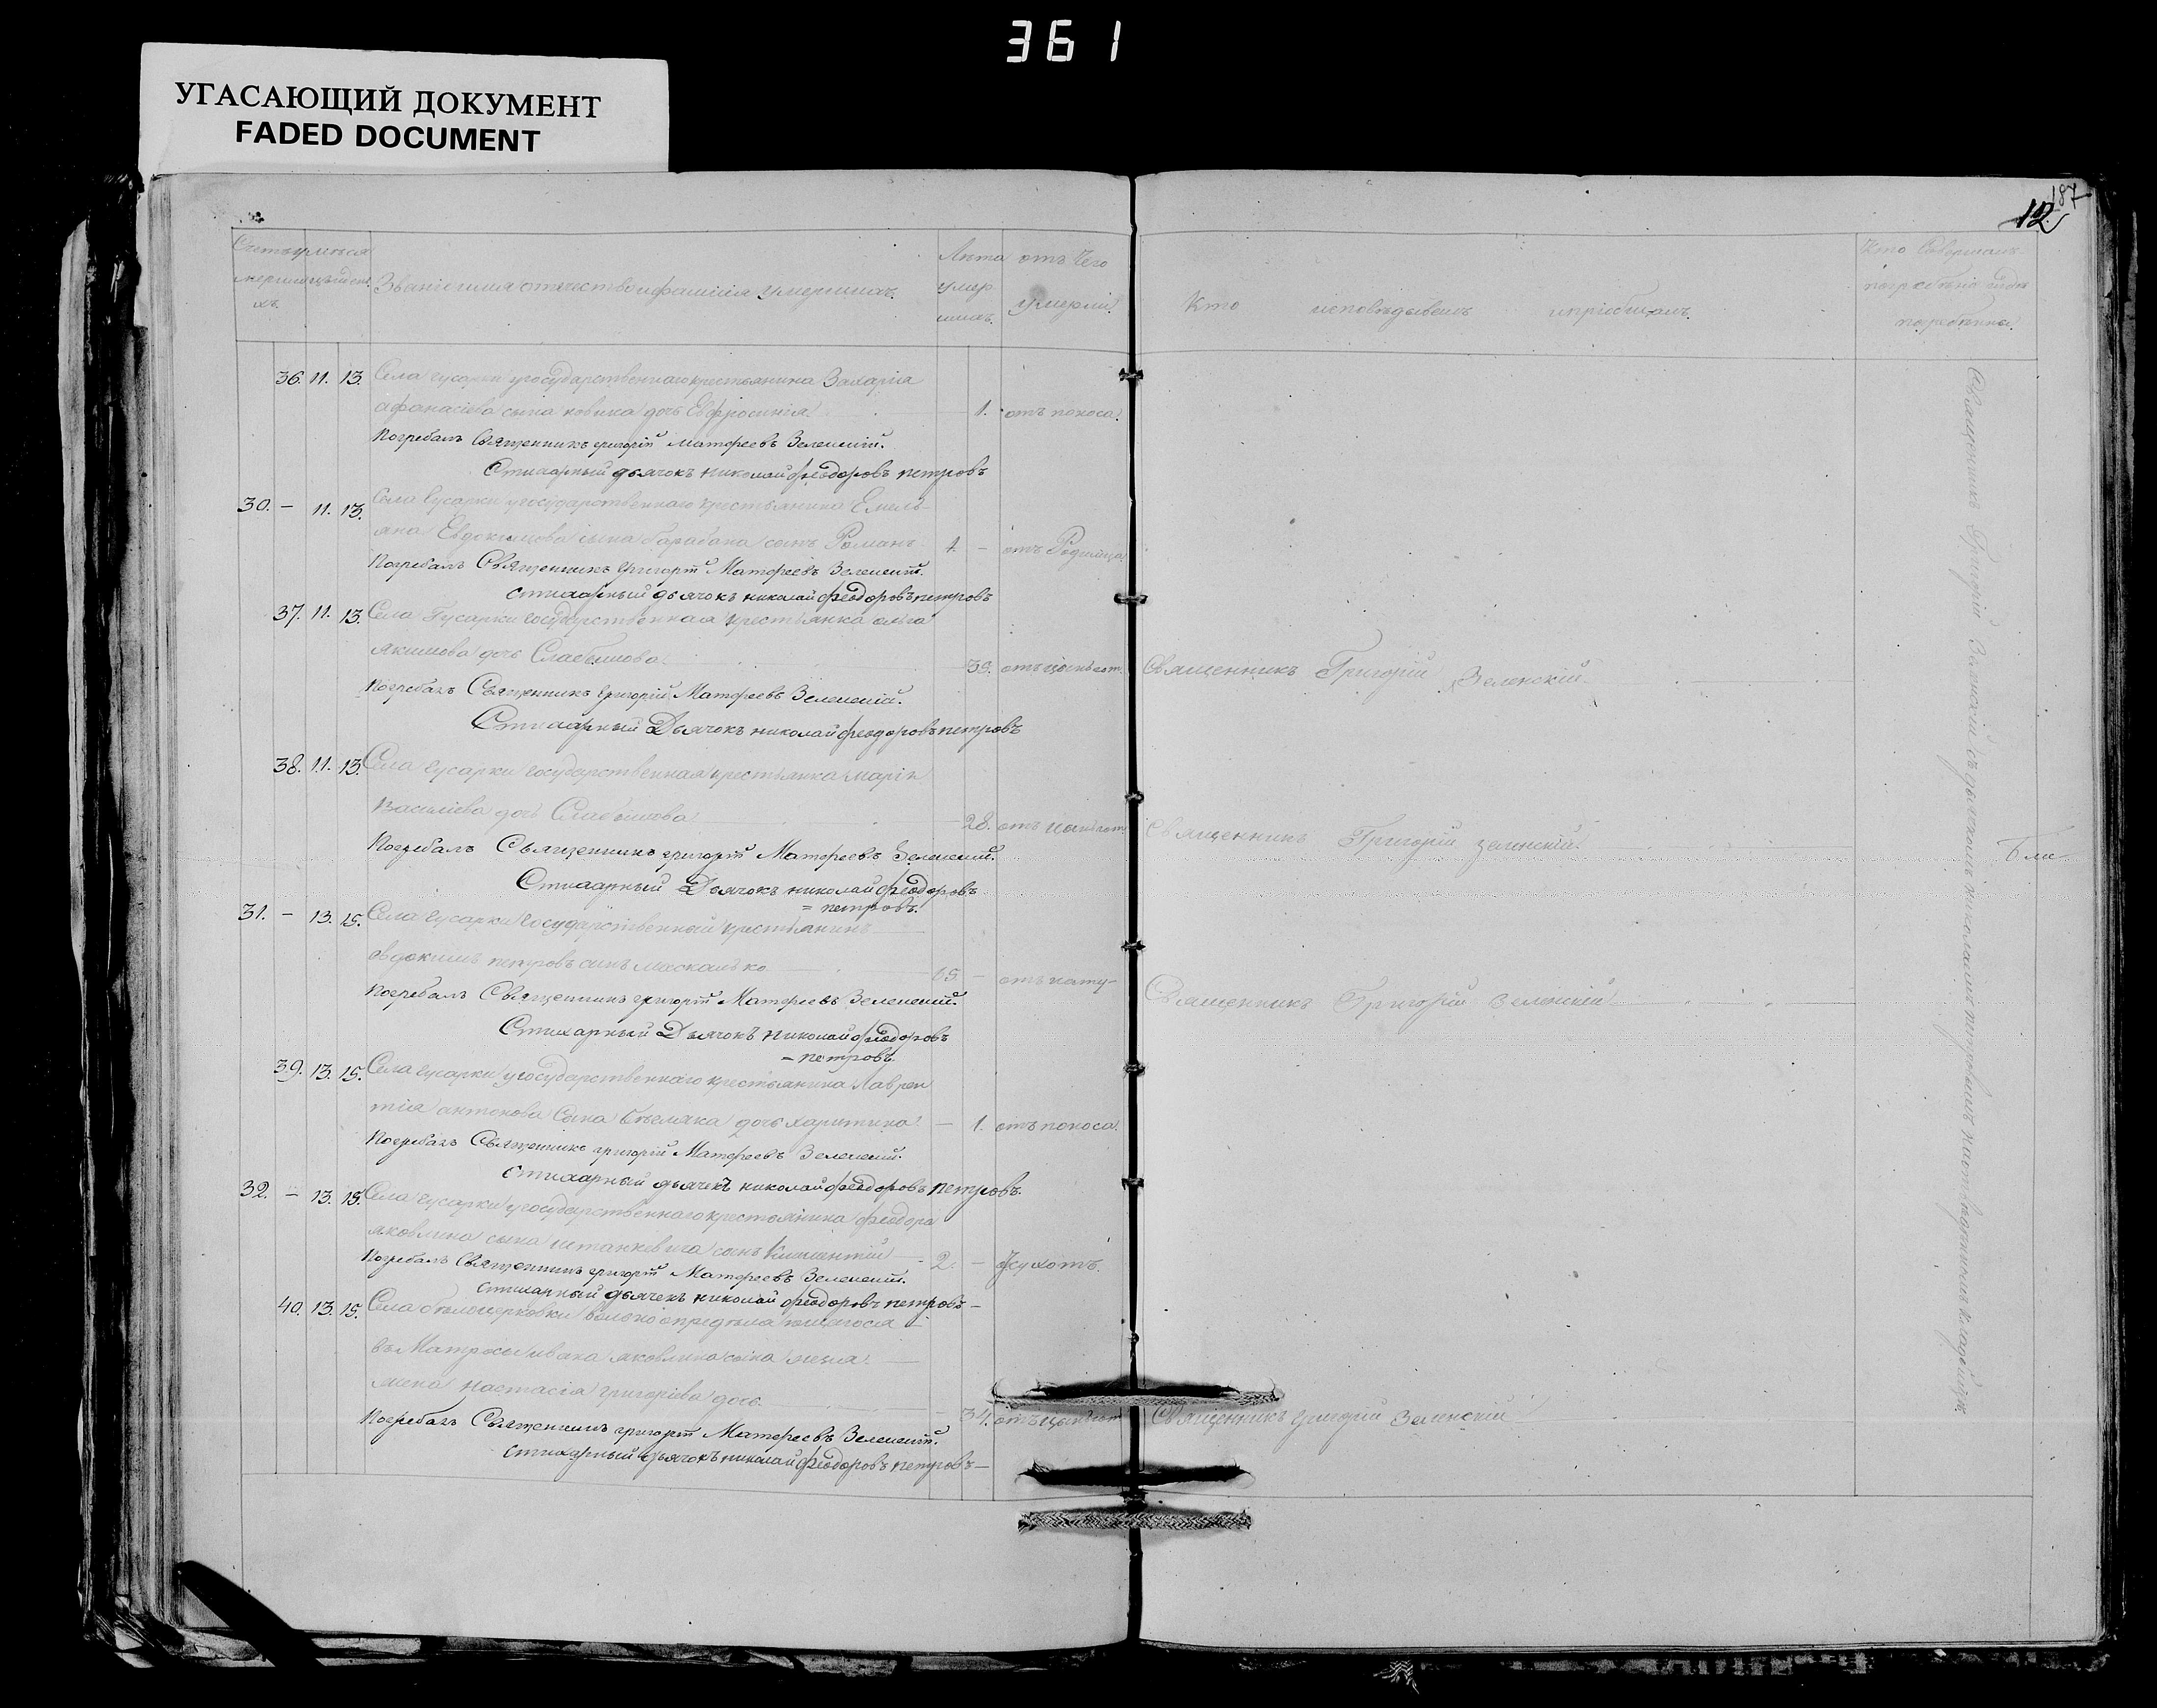 361
УГАСАЮЩИЙ ДОКУМЕНТ
FADED DOCUMENT
187
12.
Званіе имя отчество и фамилія умершихъ.
Лѣта умершихъ.
отъ чего умерли?
Кто исповѣдывалъ и пріобщалъ.
Кто совершалъ погребеніе и гдѣ погребены.
36. 11. 13. Села Гусарки у государственнаго крестьянина Захарія
афанасіева сына новика дочь Евфросинія 1. отъ поноса.
Погребалъ Священникъ григорій Матфеевъ Зеленскій.
Стихарный дьячокъ николай феодоровъ петровъ
30. – 11. 13. Села Гусарки у государственнаго крестьянина Емель-
яна Евдокимова сына барабана сынъ Романъ 1. – отъ Родимца
Погребалъ Священникъ григорій Матфеевъ Зеленскій.
стихарный дьячокъ николай феодоровъ петровъ
37. 11. 13. Села Гусарки государственная крестьянка ольга
якимова дочь Слабышова
Священникъ Григорій Зеленскій
Погребалъ Священникъ григорій Матфеевъ Зеленскій.
Стихарный Дьячокъ николай феодоровъ петровъ
38. 11. 13. Села Гусарки государственная крестьянка марія
василіева дочь Слабышова 28.
Священникъ Григорій зеленскій.
Погребалъ Священникъ григорій Матфеевъ Зеленскій.
Стихарный Дьячокъ николай феодоровъ
= петровъ.
31. – 13. 15. Села Гусарки государственный крестьянинъ
евдокимъ петровъ сынъ москалько 65 –
Священникъ Григорій зеленскій
Погребалъ Священникъ григорій Матфеевъ Зеленскій.
Стихарный Дьячокъ николай феодоровъ
= петровъ.
39. 13. 15. Села гусарки у государственнаго крестьянина Лаврен
тія антонова сына дочь харитина – 1. отъ поноса.
Погребалъ Священникъ григорій Матфеевъ Зеленскій.
стихарный дьячекъ николай феодоровъ петровъ.
32. – 13. 15. Села гусарки у государственнаго крестьянина феодора
яковлева сына штанкевича сынъ Климентій – 2. –
Погребалъ Священникъ григорій Матфеевъ Зеленскій.
стихарный дьячекъ николай феодоровъ петровъ –
40. 13. 15. Села бѣлоцерковки вольно опредѣляющагося
въ Матросы ивана яковлева сына
жена настасія григоріева дочь 34.
Священникъ григорій Зеленскій
Погребалъ Священникъ григорій Матфеевъ Зеленскій.
стихарный дьячокъ николай феодоровъ петровъ –
Священникъ Григорій Зеленскій съ дьячкомъ николаемъ петровымъ на отведенномъ кладбищѣ